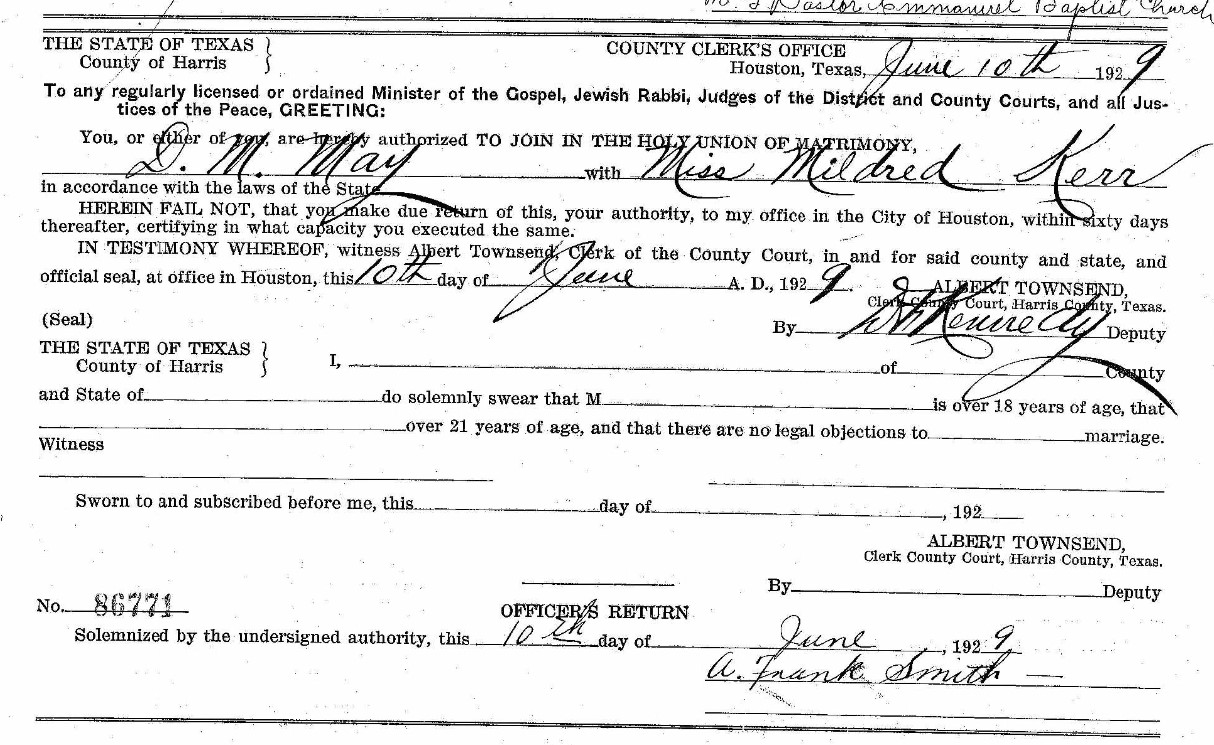 Pastor Emmanuel Baptist Church
THE STATE OF TEXAS
County of Harris
COUNTY CLERK'S OFFICE
Houston, Texas, June 10th 1929
To any regularly licensed or ordained Minister of the Gospel, Jewish Rabbi, Judges of the District and County Courts, and all Jus-
tices of the Peace, GREETING:
You, or either of you, are hereby authorized TO JOIN IN THE HOLY UNION OF MATRIMONY,
D. M. May with Miss Mildred Kerr
in accordance with the laws of the State
HEREIN FAIL NOT, that you make due return of this, your authority, to my office in the City of Houston, within sixty days
thereafter, certifying in what capacity you executed the same.
IN TESTIMONY WHEREOF, witness Albert Townsend, Clerk of the County Court, in and for said county and state, and
official seal, at office in Houston, this 10th day of June A. D., 1929.
ALBERT TOWNSEND,
Clerk County Court, Harris County, Texas.
(Seal)
By Kennedy Deputy
THE STATE OF TEXAS
County of Harris
I, of County
and State of do solemnly swear that M is over 18 years of age, that
over 21 years of age, and that there are no legal objections to marriage.
Witness
Sworn to and subscribed before me, this day of , 192
ALBERT TOWNSEND,
Clerk County Court, Harris County, Texas.
By Deputy
No. 86771
OFFICER'S RETURN
Solemnized by the undersigned authority, this 10th day of June, 1929
A. Frank Smith